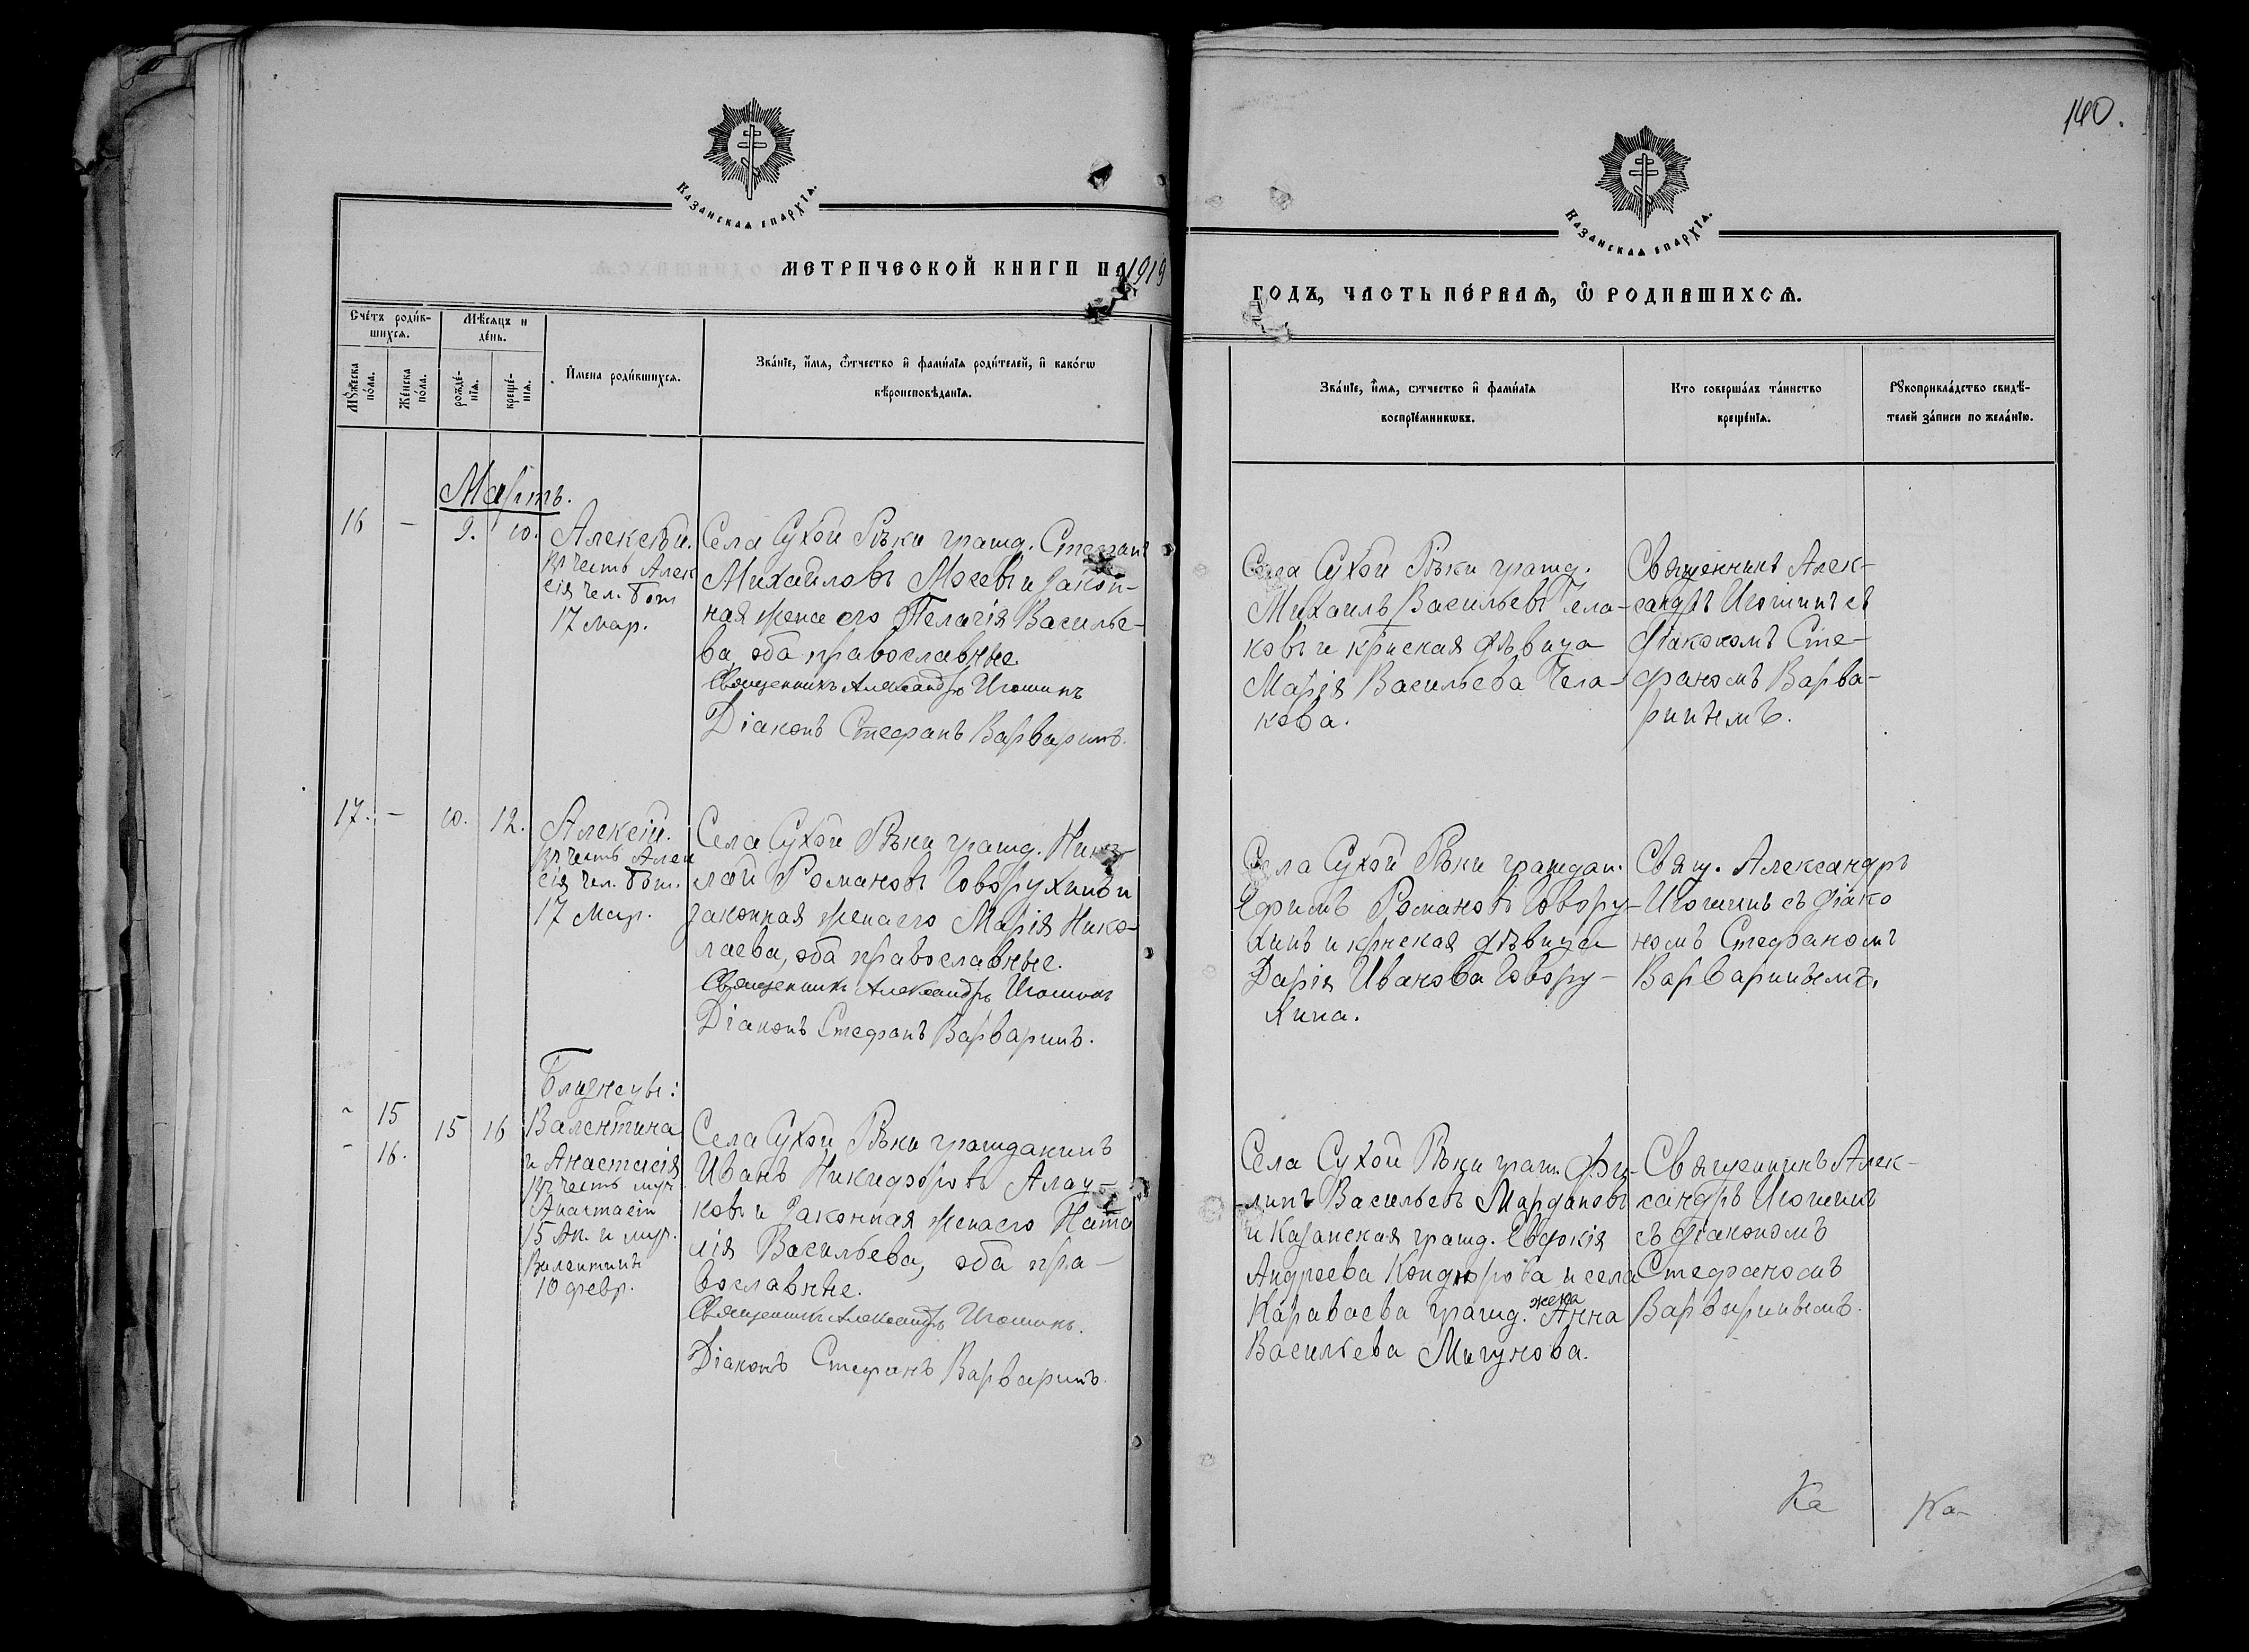 140.
Казанская епархїѧ.
Казанская епархїѧ.
МЕТРИЧЕСКОЙ КНИГИ НА 1919
ГОДЪ, ЧАСТЬ ПЕ́РВАѦ, Ѽ РОДИВШИХСѦ.
Сче́тъ роди́в-
шихсѧ.
Мѣ́сѧцъ и
де́нь.
Мꙋ́жеска
по́ла.
Же́нска
по́ла.
рожде́-
нїѧ.
креще́-
нїѧ.
И҆мена роди́вшихсѧ.
Зва́нїе, и҆́мѧ, ѻ҆́тчество и҆ фами́лїѧ роди́телей, и҆ како́гѡ
вѣроисповѣ́данїѧ.
Зва́нїе, и҆́мѧ, ѻтчество и҆ фами́лїѧ
воспрїе́мникѡвъ.
Кто соверша́лъ та́инство
креще́нїѧ.
Рꙋкоприкла́дство свидѣ́-
телей за́писи по жела́нїю.
Мартъ.
16 — 9. 10.
Алексѣй.
Въ честь Алек
сія чел. Бож
17 мар.
Села Сухой Рѣки гражд. Стефанъ
Михайловъ Мосевъ и закон-
ная жена его Пелагія Василье-
ва, оба православные.
Священникъ Александръ Игошинъ
Діаконъ Стефанъ Варваринъ.
Села Сухой Рѣки гражд.
Михаилъ Васильевъ Чела-
ковъ и крнская дѣвица
Марія Васильева Чела-
кова.
Священникъ Алек-
сандръ Игошинъ съ
діакономъ Сте-
фаномъ Варва-
ринымъ.
17. — 10. 12.
Алексій.
Въ честь Алек
сія чел. Бож.
17 Мар.
Села Сухой Рѣки гражд. Нико-
лай Романовъ Говорухинъ и
законная жена его Марія Нико-
лаева, оба православные.
Священникъ Александръ Игошинъ
Діаконъ Стефанъ Варваринъ.
Села Сухой Рѣки граждан.
Ефимъ Романовъ Говору-
хинъ и крнская дѣвица
Дарія Иванова Говору-
хина.
Свящ. Александръ
Игошинъ съ діако
номъ Стефаномъ
Варваринымъ.
Близнецы:
- 15
- 16.
15 16
Валентина
и Анастасія
Въ честь муч.
Анастасіи
15 Ап. и муч.
Валентины
10 февр.
Села Сухой Рѣки гражданинъ
Иванъ Никифоровъ Алау-
ковъ и законная жена его Ната
лія Васильева, оба пра-
вославные.
Священникъ Александръ Игошинъ.
Діаконъ Стефанъ Варваринъ.
Села Сухой Рѣки граж. Фи-
липъ Васильевъ Мардановъ
и Казанская гражд. Евдокія
Андреева Кондюрова и села
Караваева гражд. жена Анна
Васильева Мигунова.
Священникъ Алек-
сандръ Игошинъ
съ діакономъ
Стефаномъ
Варваринымъ.
Ка Ка-